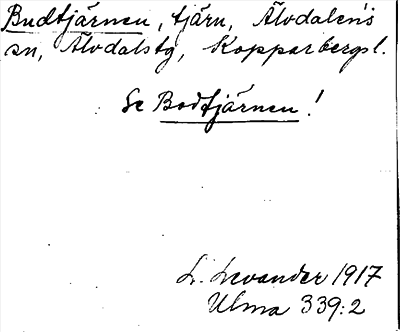 Budtjärnen, tjärn, Älvdalens
sn, Älvdalstg, Kopparbergsl.
Se Bodtjärnen!
L. Levander 1917
Ulma 339:2